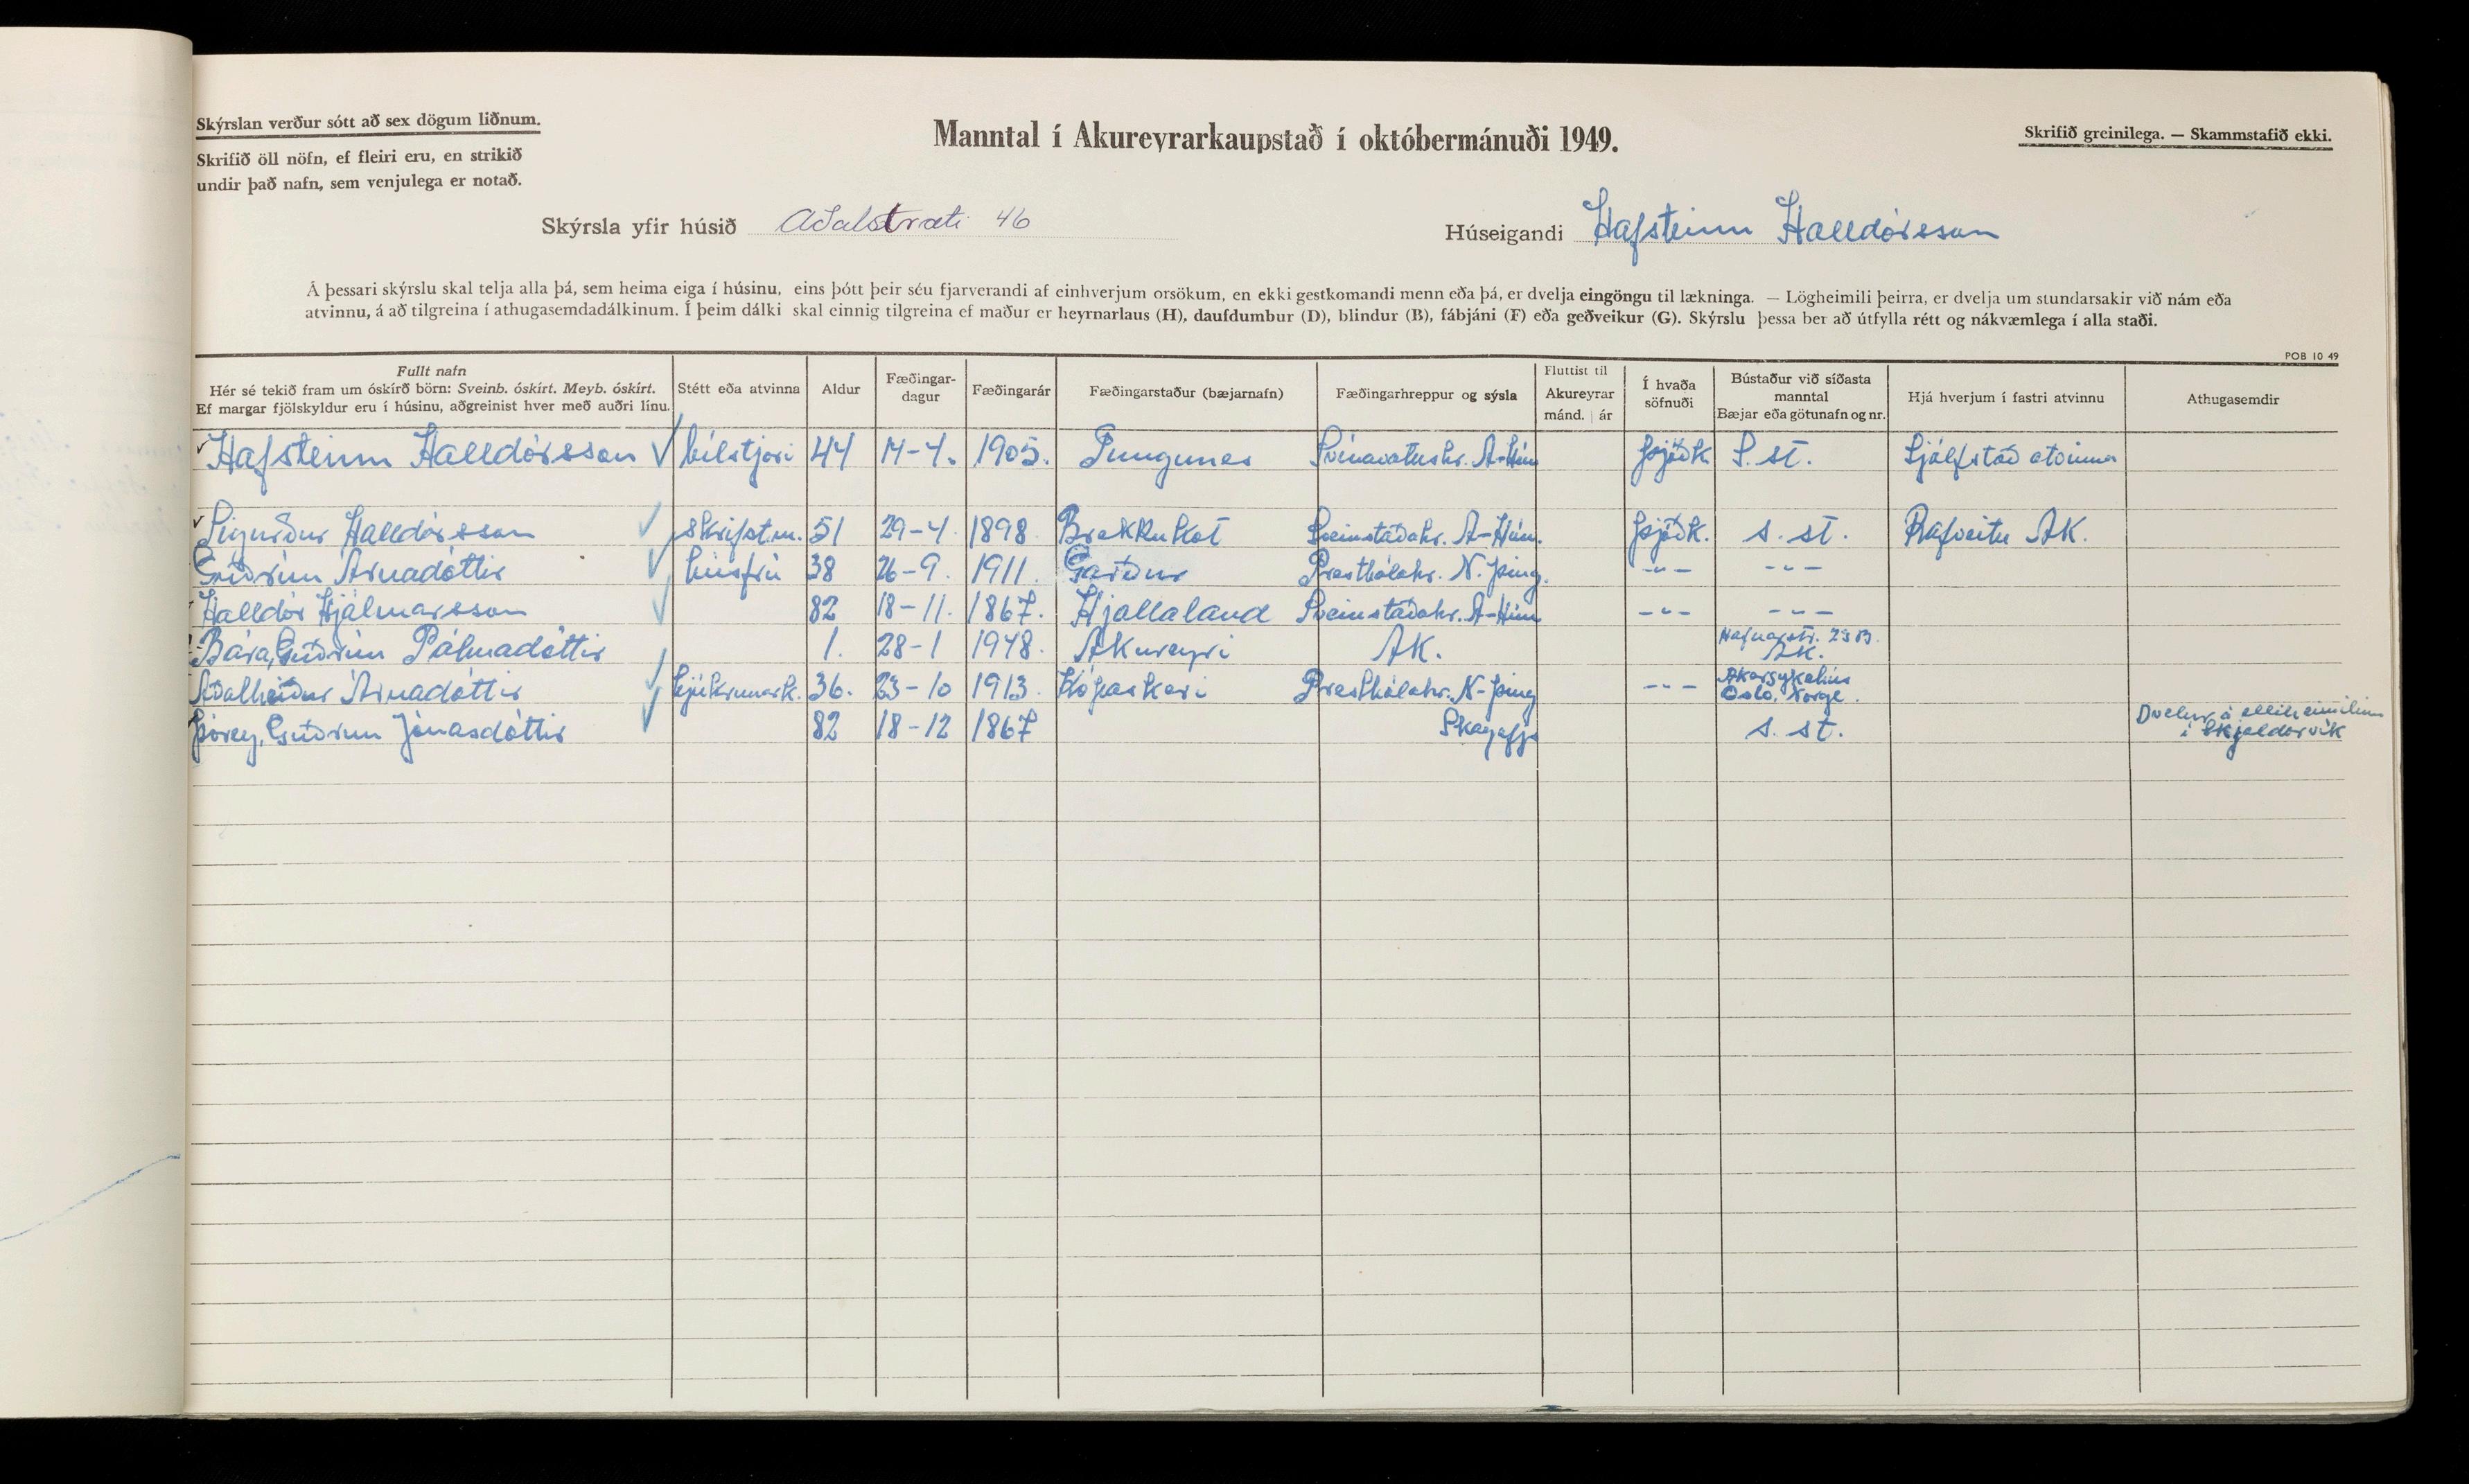 Skýrslan verður sótt að sex dögum liðnum.
Skrifið öll nöfn, ef fleiri eru, en strikið
undir það nafn, sem venjulega er notað.
Manntal í Akureyrarkaupstað í októbermánuði 1949.
Skrifið greinilega. — Skammstafið ekki.
Skýrsla yfir húsið Aðalstræti 46
Húseigandi Hafsteinn Halldórsson
Á þessari skýrslu skal telja alla þá, sem heima eiga í húsinu, eins þótt þeir séu fjarverandi af einhverjum orsökum, en ekki gestkomandi menn eða þá, er dvelja eingöngu til lækninga. — Lögheimili þeirra, er dvelja um stundarsakir við nám eða
atvinnu, á að tilgreina í athugasemdadálkinum. Í þeim dálki skal einnig tilgreina ef maður er heyrnarlaus (H), daufdumbur (D), blindur (B), fábjáni (F) eða geðveikur (G). Skýrslu þessa ber að útfylla rétt og nákvæmlega í alla staði.
POB 10 49
Fullt nafn
Hér sé tekið fram um óskírð börn: Sveinb. óskírt. Meyb. óskírt.
Ef margar fjölskyldur eru í húsinu, aðgreinist hver með auðri línu.
Stétt eða atvinna
Aldur
Fæðingar-
dagur
Fæðingarár
Fæðingarstaður (bæjarnafn)
Fæðingarhreppur og sýsla
Fluttist til
Akureyrar
mánd. | ár
Í hvaða
söfnuði
Bústaður við síðasta
manntal
Bæjar eða götunafn og nr.
Hjá hverjum í fastri atvinnu
Athugasemdir
Hafsteinn Halldórsson bílstjóri 44 14-4. 1905. Tungunes Svínavatnshr. A-Hún Þjóðk. S. st. Sjálfstæð atvinna
Sigurður Halldórsson skrifst.m. 51 29-4. 1898 Brekkukot Sveinstaðahr. A-Hún. Þjóðk. s. st. Rafveitu AK.
Guðrún Árnadóttir húsfrú 38 26-9. 1911. Garður Presthólahr. N. Þing. -"- -"-
Halldór Hjálmarsson 82 18-11. 1867. Hjallaland Sveinstaðahr. A-Hún -"- -"-
Bára, Guðrún Pálmadóttir 1. 28-1 1948. Akureyri AK. Hafnarstr. 23 B. AK.
Aðalheiður Árnadóttir hjúkrunark. 36. 23-10 1913. Kópaskeri Presthólahr. N-Þing -"- Oslo, Norge.
Þórey, Guðrún Jónasdóttir 82 18-12 1867 Skagafj. s. st. Dvelur á elliheimilinu
í Skjaldarvík